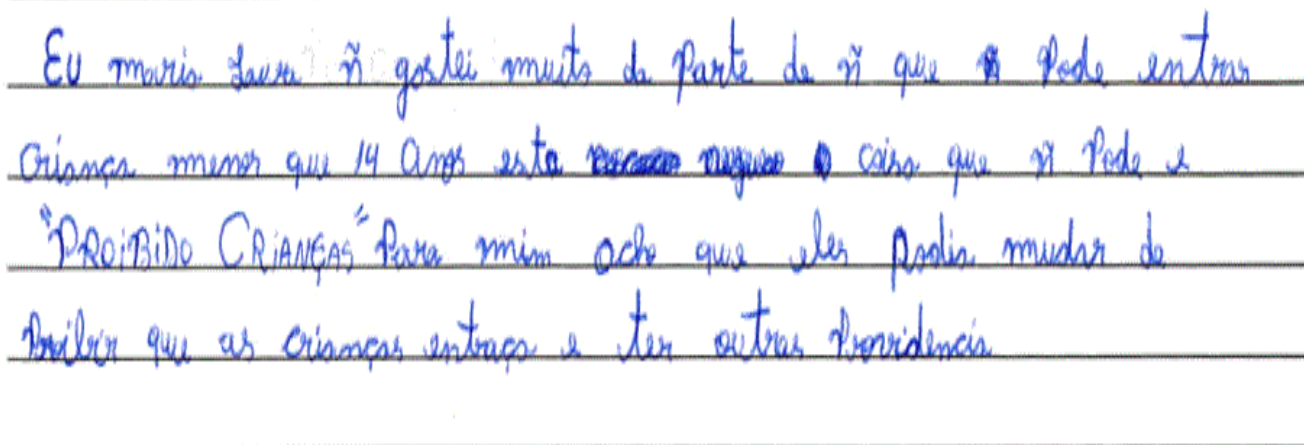 Eu maria Laura ñ gostei muito da Parte de ñ que Pode entrar
criança menor que 14 Anos esta coisa que ñ Pode e
"PROiBiDO CRiANÇAS" Para mim acho que eles podia mudar de
Proibir que as crianças entraço e ter outras Providencia